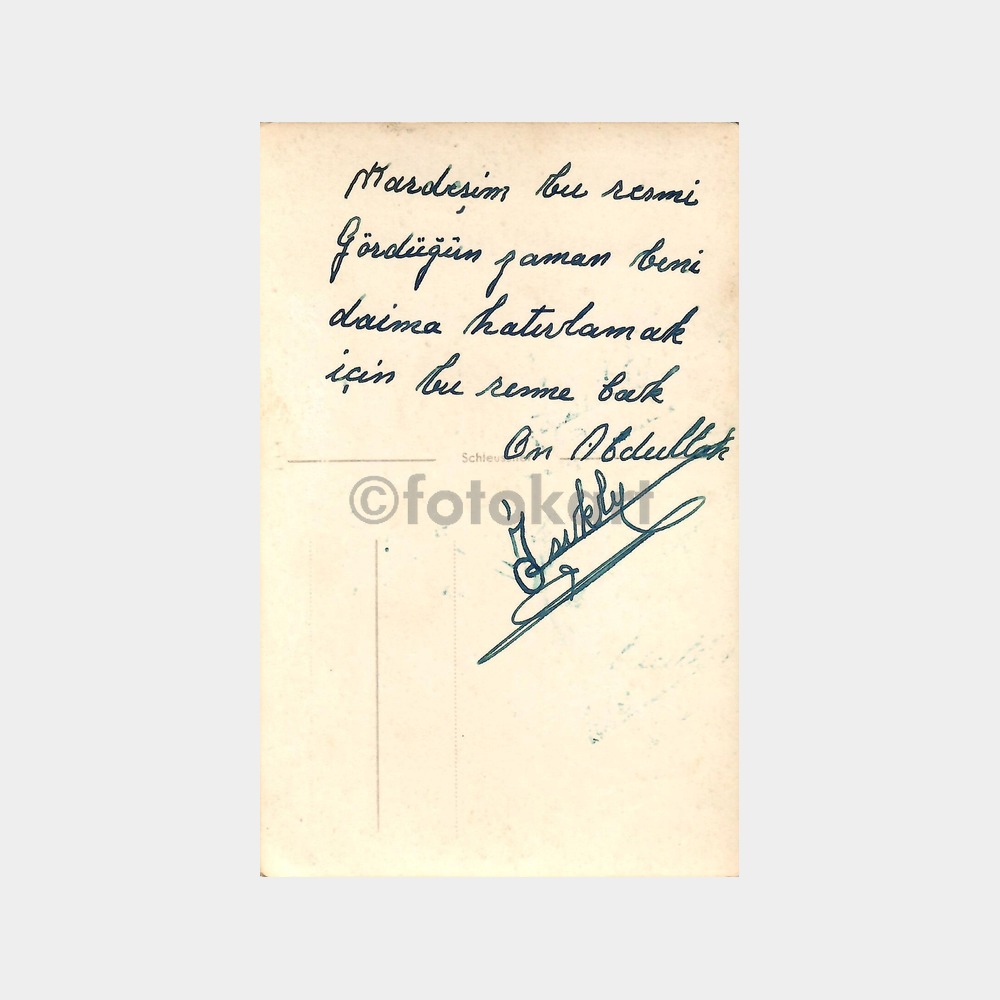 Kardeşim bu resmi
Gördüğün zaman beni
daima hatırlamak
için bu resme bak
On Abdullah
Schleussner
©fotokart